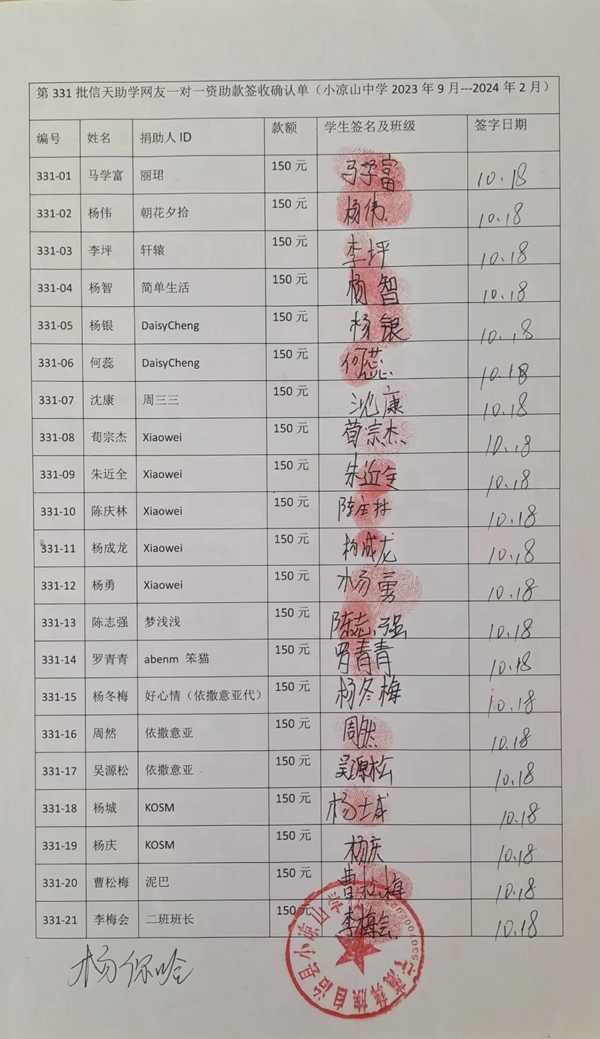 第 331 批信天助学网友一对一资助款签收确认单（小凉山中学 2023 年 9 月---2024 年 2 月）
编号 姓名 捐助人 ID 款额 学生签名及班级 签字日期
331-01 马学富 丽珺 150 元 马学富 10.18
331-02 杨伟 朝花夕拾 150 元 杨伟 10.18
331-03 李坪 轩辕 150 元 李坪 10.18
331-04 杨智 简单生活 150 元 杨智 10.18
331-05 杨银 DaisyCheng 150 元 杨银 10.18
331-06 何蕊 DaisyCheng 150 元 何蕊 10.18
331-07 沈康 周三三 150 元 沈康 10.18
331-08 荀宗杰 Xiaowei 150 元 荀宗杰 10.18
331-09 朱近全 Xiaowei 150 元 朱近全 10.18
331-10 陈庆林 Xiaowei 150 元 陈庆林 10.18
331-11 杨成龙 Xiaowei 150 元 杨成龙 10.18
331-12 杨勇 Xiaowei 150 元 杨勇 10.18
331-13 陈志强 梦浅浅 150 元 陈志强 10.18
331-14 罗青青 abenm 笨猫 150 元 罗青青 10.18
331-15 杨冬梅 好心情（依撒意亚代） 150 元 杨冬梅 10.18
331-16 周然 依撒意亚 150 元 周然 10.18
331-17 吴源松 依撒意亚 150 元 吴源松 10.18
331-18 杨城 KOSM 150 元 杨城 10.18
331-19 杨庆 KOSM 150 元 杨庆 10.18
331-20 曹松梅 泥巴 150 元 曹松梅 10.18
331-21 李梅会 二班班长 150 元 李梅会 10.18
族自治县小凉山中学